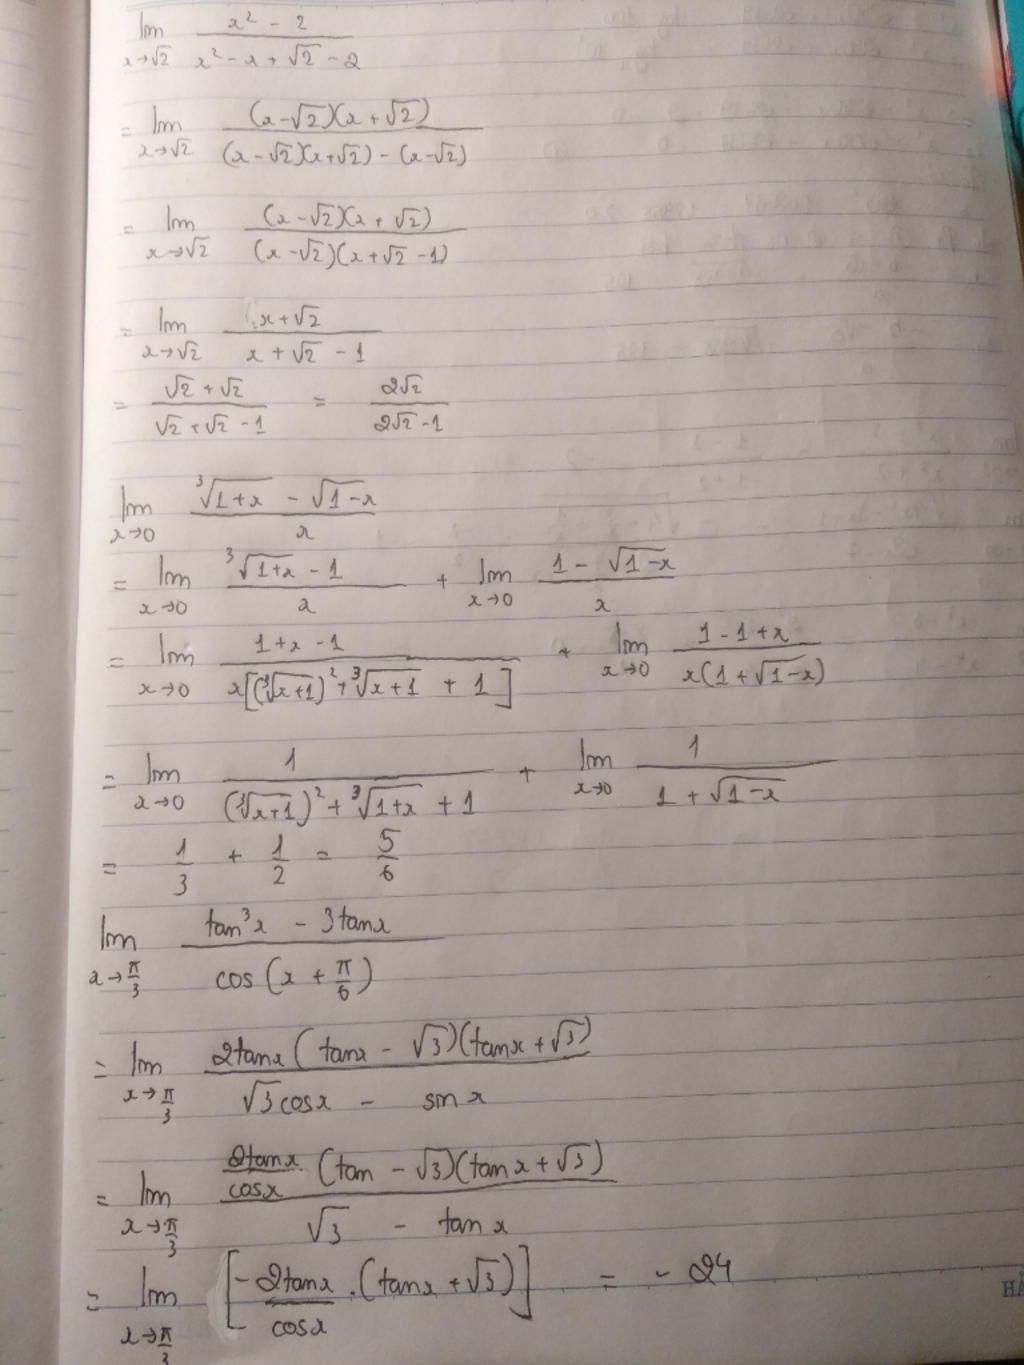 lim x→√2 (x² - 2)/(x² - x + √2 - 2)
= lim x→√2 ((x-√2)(x+√2))/((x-√2)(x+√2) - (x-√2))
= lim x→√2 ((x-√2)(x+√2))/((x-√2)(x+√2-1))
= lim x→√2 (x+√2)/(x+√2-1)
= (√2+√2)/(√2+√2-1) = 2√2/(2√2-1)
lim x→0 (³√(1+x) - √(1-x))/x
= lim x→0 (³√(1+x) - 1)/x + lim x→0 (1 - √(1-x))/x
= lim x→0 (1+x-1)/(x[(³√(x+1))² + ³√(x+1) + 1]) + lim x→0 (1-1+x)/(x(1+√(1-x)))
= lim x→0 1/((³√(x+1))² + ³√(1+x) + 1) + lim x→0 1/(1+√(1-x))
= 1/3 + 1/2 = 5/6
lim x→π/3 (tan³x - 3tanx)/(cos(x + π/6))
= lim x→π/3 (2tanx(tanx - √3)(tanx + √3))/(√3cosx - sinx)
= lim x→π/3 ((2tanx/cosx)(tan - √3)(tanx + √3))/(√3 - tanx)
= lim x→π/3 [-2tanx/cosx . (tanx + √3)] = -24